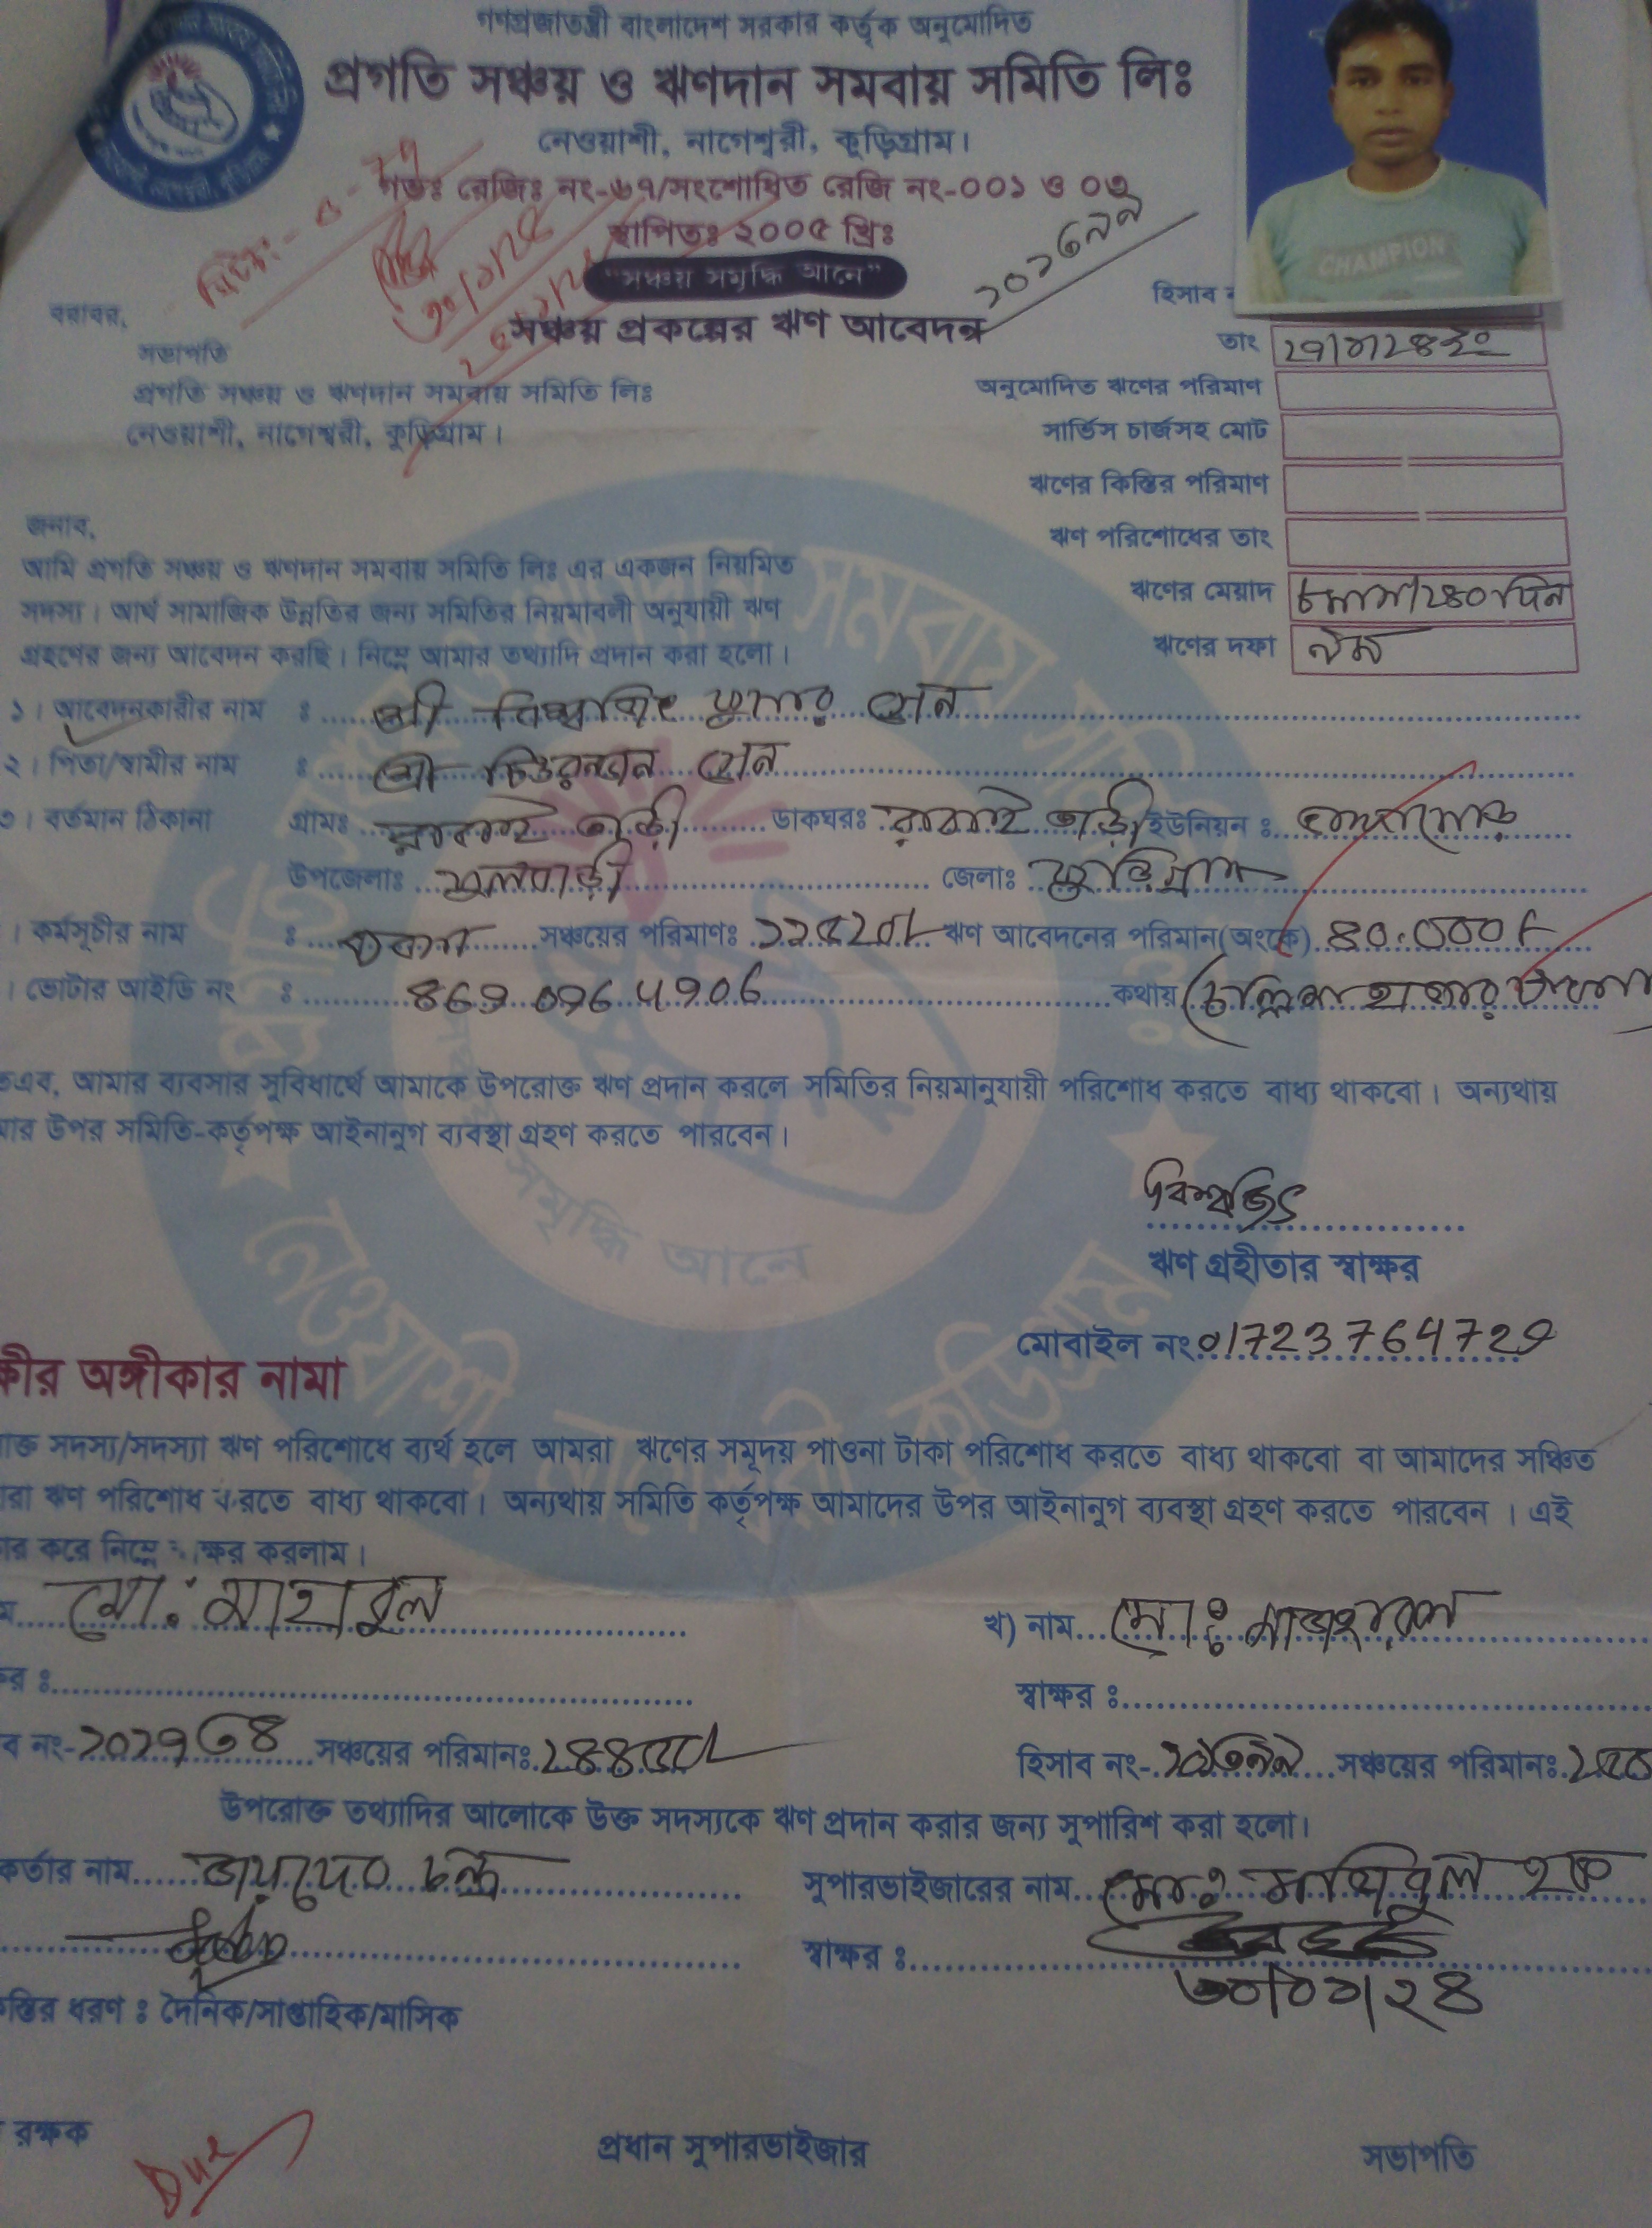 গণপ্রজাতন্ত্রী বাংলাদেশ সরকার কর্তৃক অনুমোদিত
প্রগতি সঞ্চয় ও ঋণদান সমবায় সমিতি লিঃ
নেওয়াশী, নাগেশ্বরী, কুড়িগ্রাম।
গভঃ রেজিঃ নং-৬৭/সংশোধিত রেজি নং-০০১ ও ০৩
স্থাপিতঃ ২০০৫ খ্রিঃ
"সঞ্চয় সমৃদ্ধি আনে"
সঞ্চয় প্রকল্পের ঋণ আবেদন
CHAMPION
হিসাব
বরাবর,
সভাপতি
প্রগতি সঞ্চয় ও ঋণদান সমবায় সমিতি লিঃ
নেওয়াশী, নাগেশ্বরী, কুড়িগ্রাম।
তাং
অনুমোদিত ঋণের পরিমাণ
সার্ভিস চার্জসহ মোট
ঋণের কিস্তির পরিমাণ
ঋণ পরিশোধের তাং
ঋণের মেয়াদ ৮মাস/২৪০দিন
ঋণের দফা ১ম
জনাব,
আমি প্রগতি সঞ্চয় ও ঋণদান সমবায় সমিতি লিঃ এর একজন নিয়মিত
সদস্য। আর্থ সামাজিক উন্নতির জন্য সমিতির নিয়মাবলী অনুযায়ী ঋণ
গ্রহণের জন্য আবেদন করছি। নিম্নে আমার তথ্যাদি প্রদান করা হলো।
১। আবেদনকারীর নাম : শ্রী বিশ্বজিৎ কুমার সেন
২। পিতা/স্বামীর নাম : শ্রী চিত্তরঞ্জন সেন
৩। বর্তমান ঠিকানা গ্রামঃ রাবাইতাড়ী ডাকঘরঃ রাবাইতাড়ী ইউনিয়ন :
উপজেলাঃ ফুলবাড়ী জেলাঃ কুড়িগ্রাম
। কর্মসূচীর নাম : সঞ্চয়ের পরিমাণঃ ঋণ আবেদনের পরিমান(অংকে) ৪০,০০০/-
। ভোটার আইডি নং : কথায় (চল্লিশ হাজার টাকা
অতএব, আমার ব্যবসার সুবিধার্থে আমাকে উপরোক্ত ঋণ প্রদান করলে সমিতির নিয়মানুযায়ী পরিশোধ করতে বাধ্য থাকবো। অন্যথায়
আমার উপর সমিতি-কর্তৃপক্ষ আইনানুগ ব্যবস্থা গ্রহণ করতে পারবেন।
বিশ্বজিৎ
ঋণ গ্রহীতার স্বাক্ষর
মোবাইল নং 01723764729
ক্ষীর অঙ্গীকার নামা
ক্ত সদস্য/সদস্যা ঋণ পরিশোধে ব্যর্থ হলে আমরা ঋণের সমূদয় পাওনা টাকা পরিশোধ করতে বাধ্য থাকবো বা আমাদের সঞ্চিত
রা ঋণ পরিশোধ করতে বাধ্য থাকবো। অন্যথায় সমিতি কর্তৃপক্ষ আমাদের উপর আইনানুগ ব্যবস্থা গ্রহণ করতে পারবেন। এই
র করে নিম্নে স্বাক্ষর করলাম।
ম মো: মাহাবুল খ) নাম মো:
ক্ষর : স্বাক্ষর :
ব নং- সঞ্চয়ের পরিমানঃ হিসাব নং- সঞ্চয়ের পরিমানঃ
উপরোক্ত তথ্যাদির আলোকে উক্ত সদস্যকে ঋণ প্রদান করার জন্য সুপারিশ করা হলো।
কর্তার নাম জয়দেব চন্দ্র সুপারভাইজারের নাম মো: হক
স্বাক্ষর :
৩০/০১/২৪
স্তির ধরণ : দৈনিক/সাপ্তাহিক/মাসিক
রক্ষক প্রধান সুপারভাইজার সভাপতি